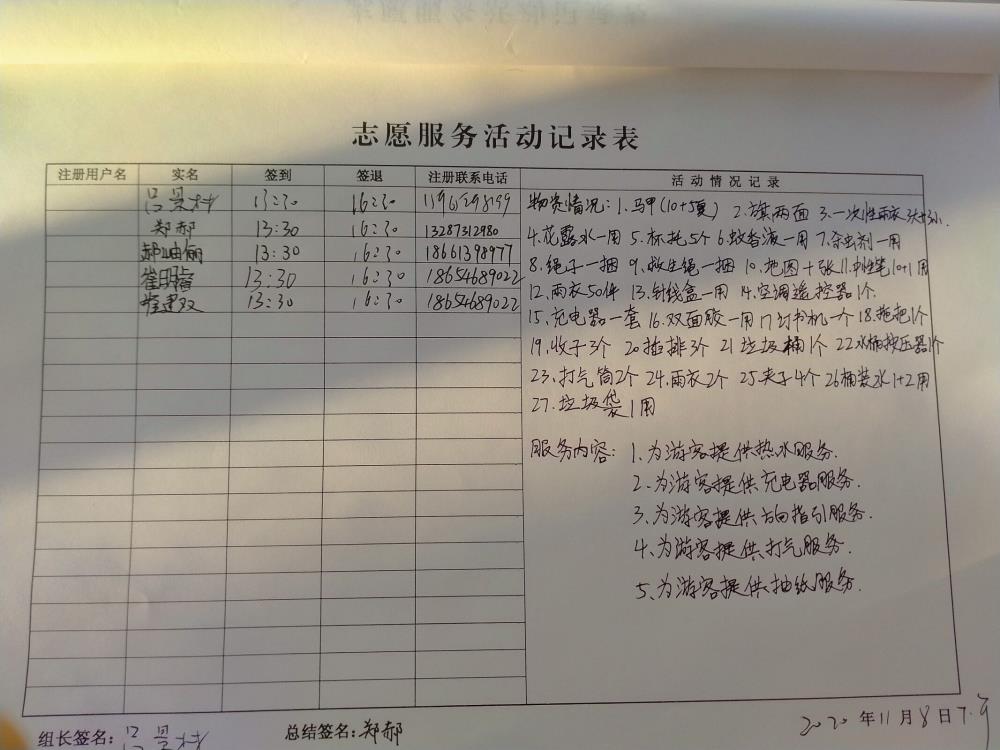 志愿服务活动记录表
注册用户名 实名 签到 签退 注册联系电话 活动情况记录
吕景林 13:30 16:30
郑郝 13:30 16:30 13287312980
郝岫俪 13:30 16:30 18661398977
崔明 13:30 16:30 18654689022
崔建双 13:30 16:30 18654689022
物资情况: 1.马甲(10+5夏) 2.旗两面 3.一次性雨衣
4.花露水一用 5.标托5个 6.蚊香液一用 7.杀虫剂一用
8.绳子一捆 9.救生绳一捆 10.地图十张 11.中性笔10+1用
12.雨衣50件 13.针线盒一用 14.空调遥控器1个.
15.充电器一套 16.双面胶一用 17订书机一个 18.拖把1个
19.收子3个 20插排3个 21垃圾桶1个 22水桶按压器1个
23.打气筒2个 24.雨衣2个 25.夹子4个 26桶装水1+2用
27.垃圾袋1用
服务内容: 1.为游客提供热水服务.
2.为游客提供充电器服务.
3.为游客提供方向指引服务.
4.为游客提供打气服务.
5.为游客提供抽纸服务.
组长签名: 吕景林 总结签名: 郑郝 2020年11月8日